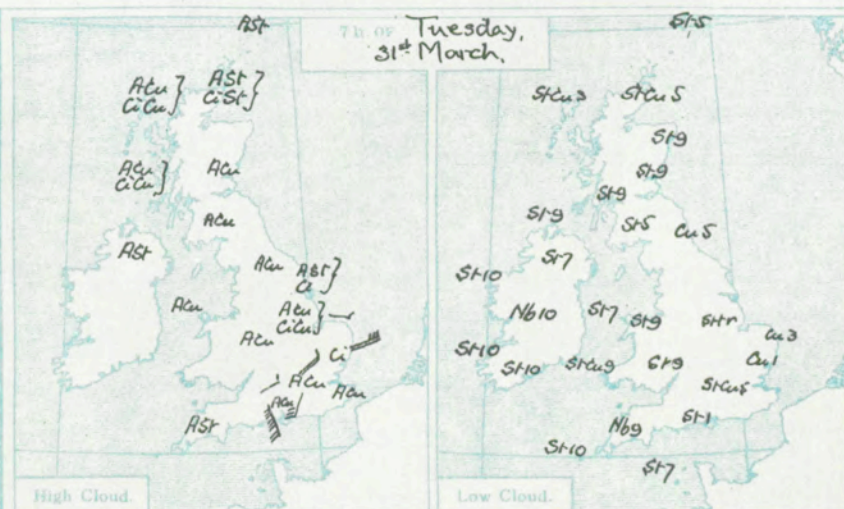 7 h. OF Tuesday,
31st March.
ASt
ACu
CiCu
ASt
CiSt
ACu
CiCu
ACu
ACu
ASt
ACu
ASt
Ci
ACu
ACu
CiCu
ACu
Ci
ACu
ACu
ACu
ASt
High Cloud.
St5
StCu3
StCu5
St9
St9
St9
St9
St5
Cu5
St7
St10
Nb10
St7
St9
Cu3
St10
St10
StCu9
St9
Cu1
StCu5
Nb9
St1
St10
St7
Low Cloud.